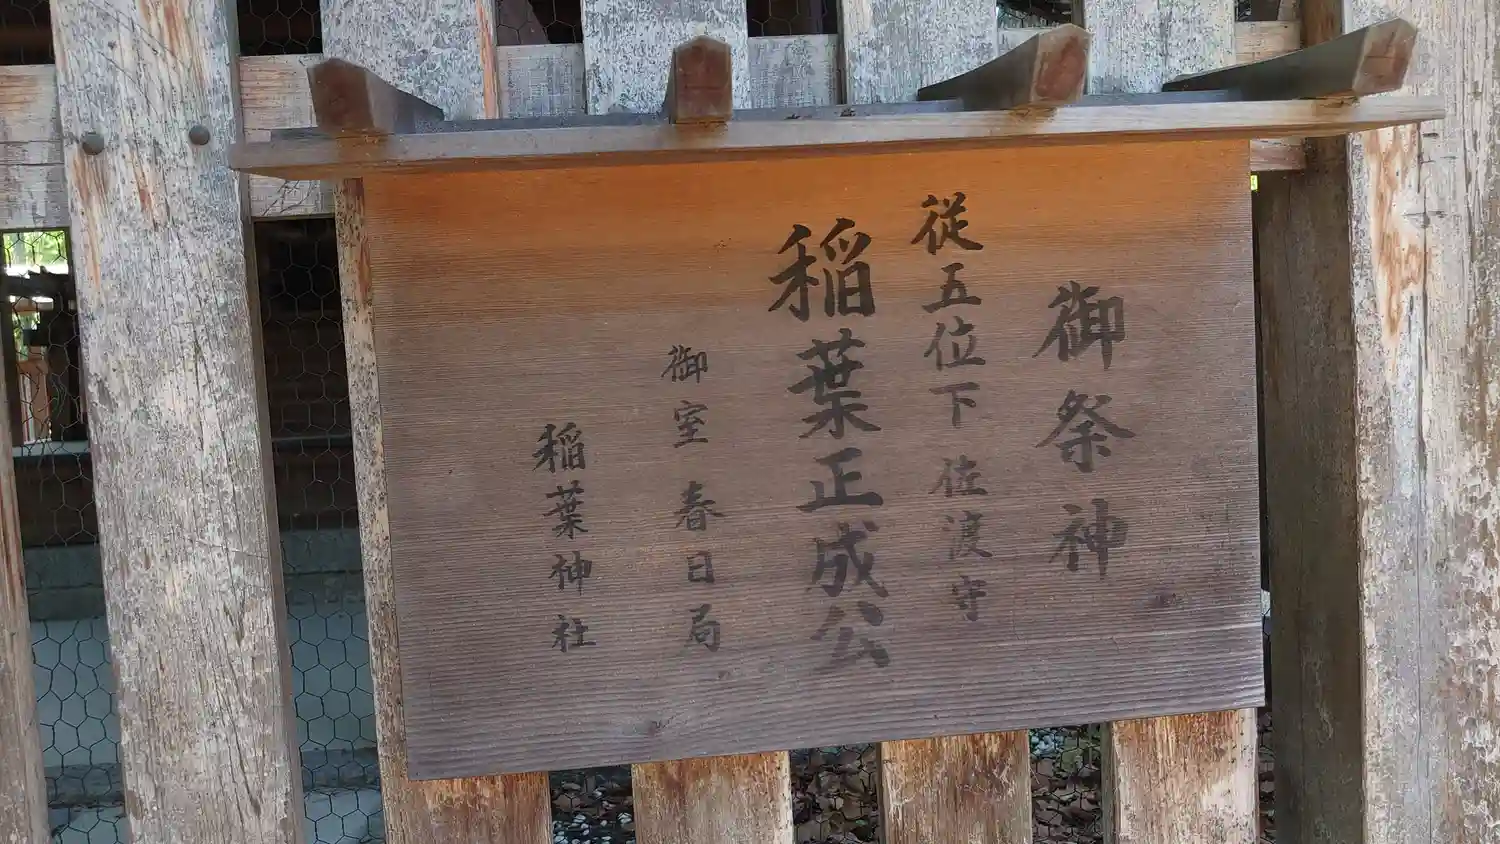 御祭神
従五位下 佐渡守
稲葉正成公
御室 春日局
稲葉神社